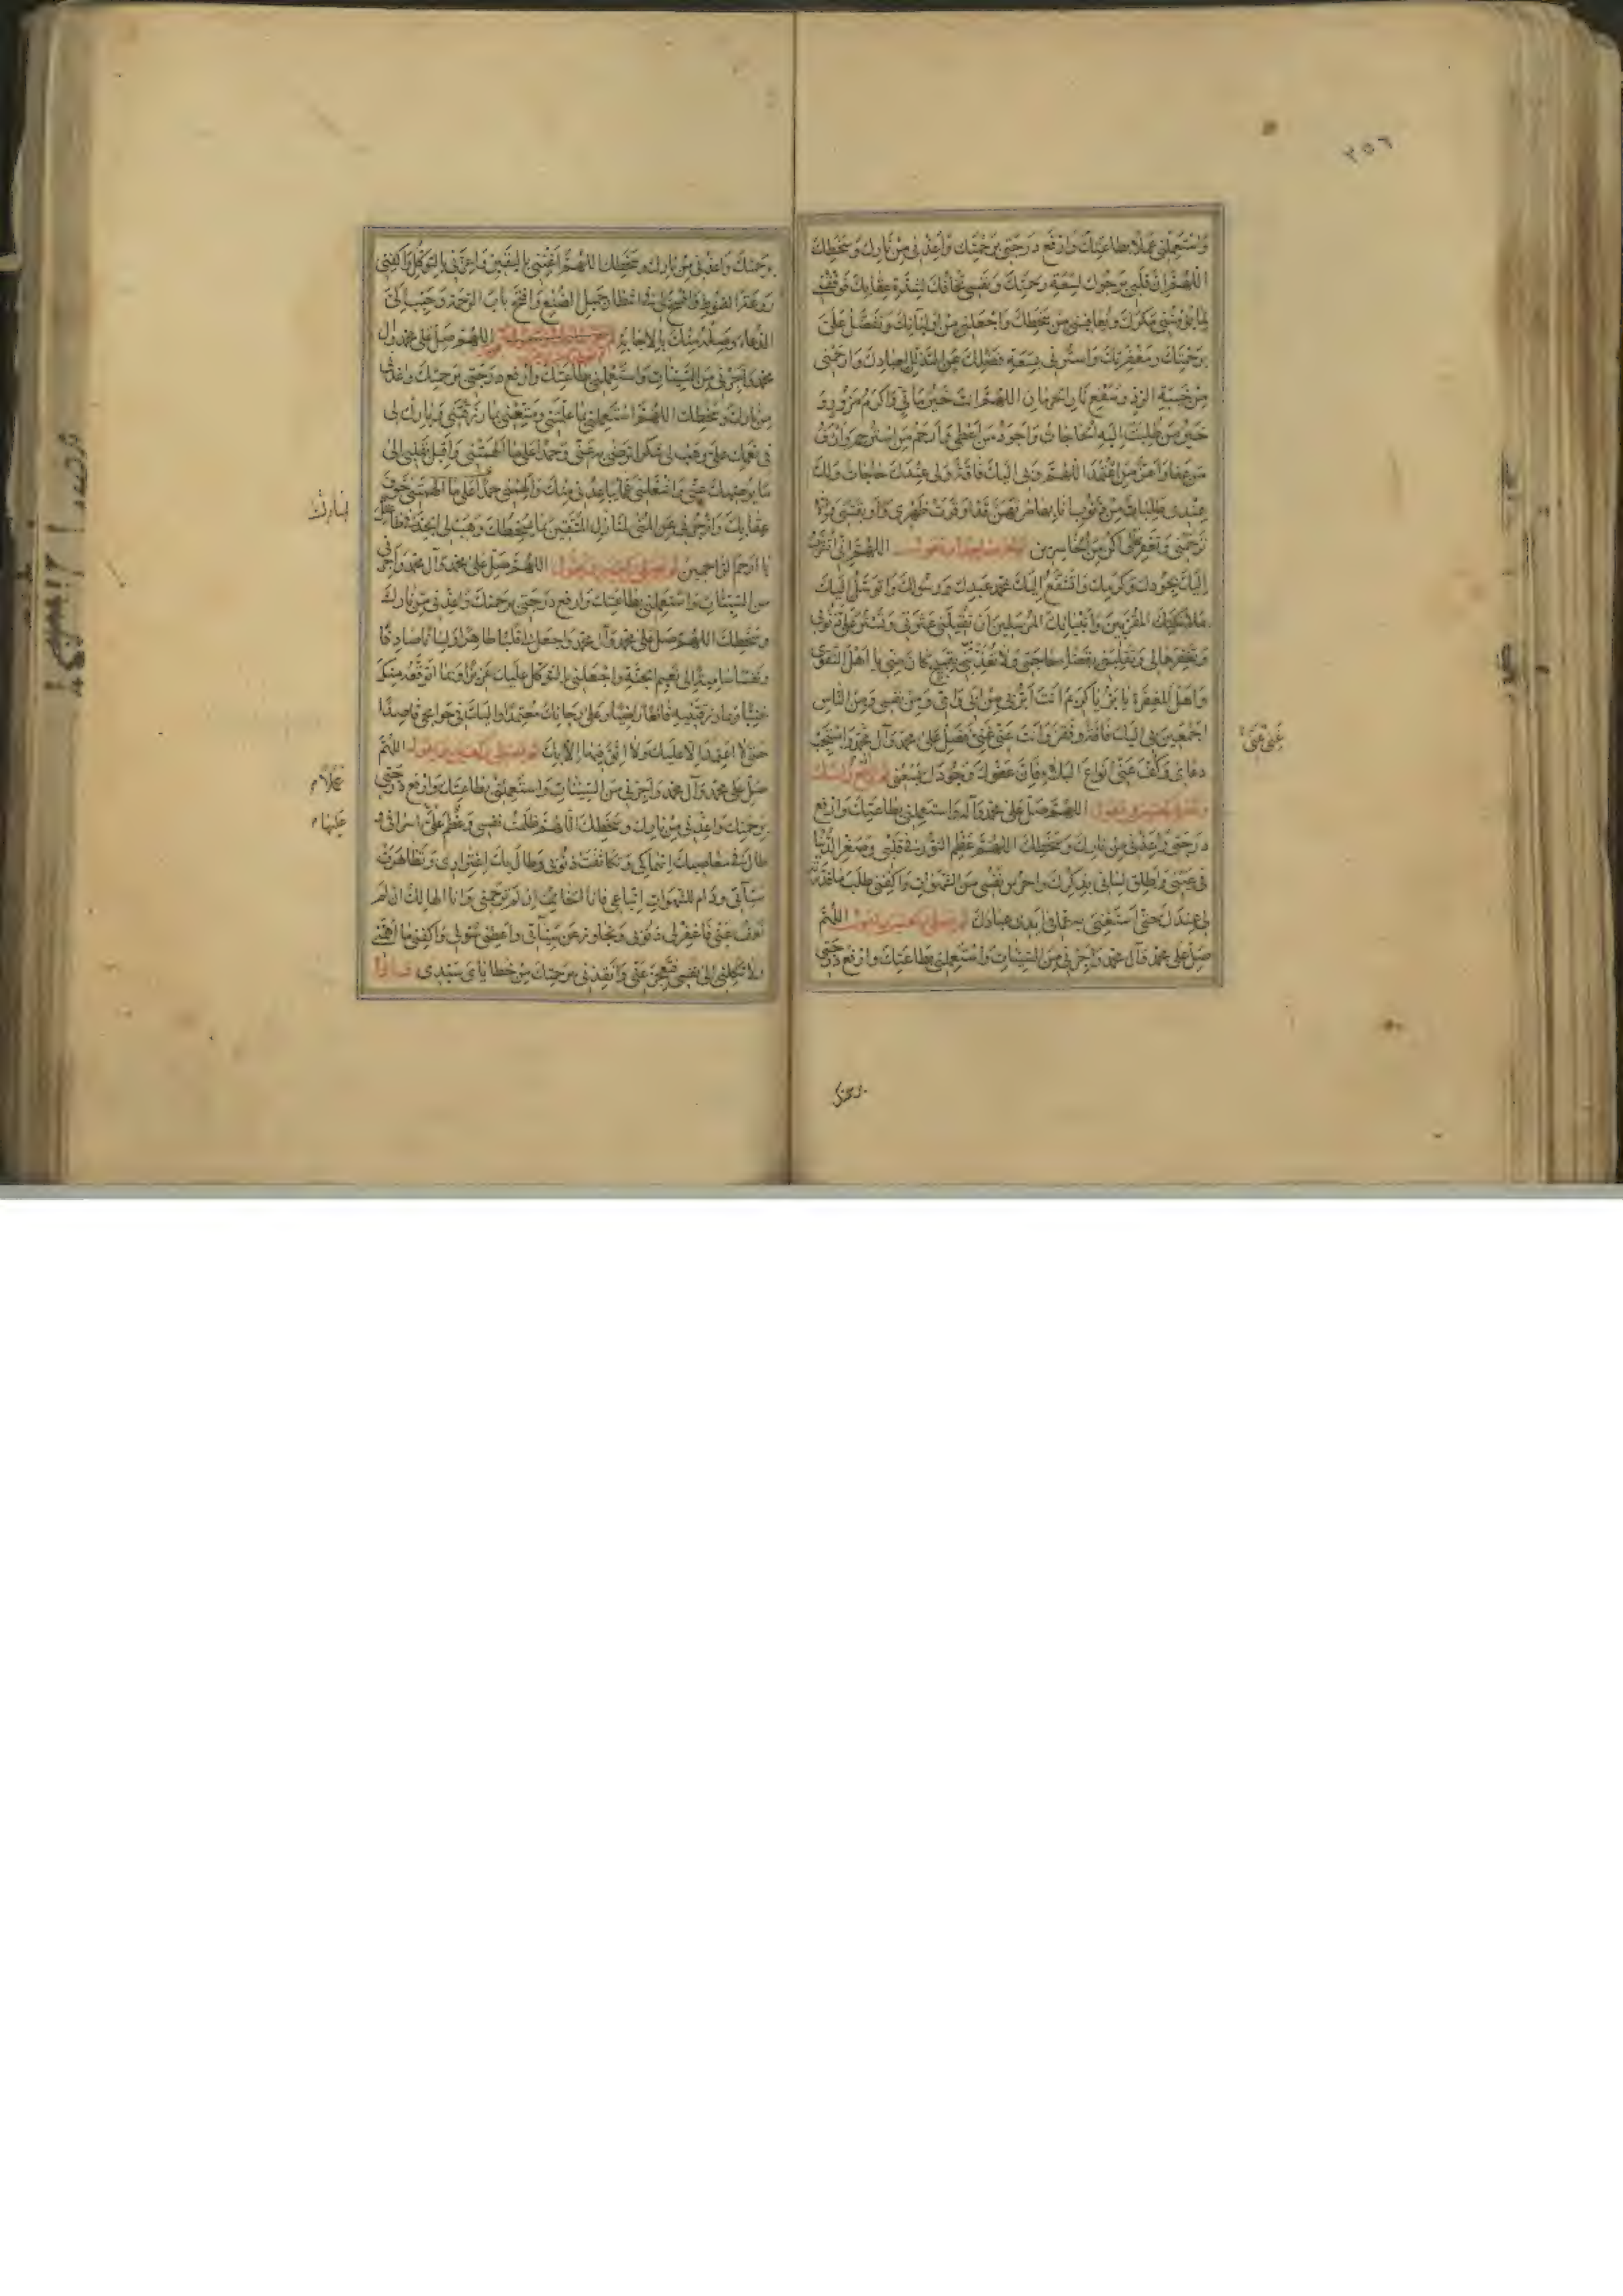 ٢٥٦
وَاسْتَعْمِلْنِي عَمَلًا بِطَاعَتِكَ وَارْفَعْ دَرَجَتِي بِرَحْمَتِكَ وَأَعِذْنِي مِنْ نَارِكَ وَسَخَطِكَ
اللّٰهُمَّ إِنَّ قَلْبِي يَرْجُوكَ لِسَعَةِ رَحْمَتِكَ وَنَفْسِي تَخَافُكَ لِشِدَّةِ عِقَابِكَ فَوَفِّقْنِي
لِمَا يُؤْمِنُنِي مَكْرَكَ وَيُعَافِينِي مِنْ سَخَطِكَ وَاجْعَلْنِي مِنْ أَوْلِيَائِكَ وَتَفَضَّلْ عَلَيَّ
بِرَحْمَتِكَ وَمَغْفِرَتِكَ وَاسْتُرْنِي بِسَعَةِ فَضْلِكَ عَنِ التَّذَلُّلِ لِعِبَادِكَ وَارْحَمْنِي
مِنْ خَيْبَةِ الرَّدِّ وَسَفْعِ نَارِ الْحِرْمَانِ اللّٰهُمَّ أَنْتَ خَيْرُ مَأْتِيٍّ وَأَكْرَمُ مَزُورٍ وَ
خَيْرُ مَنْ طُلِبَتْ إِلَيْهِ الْحَاجَاتُ وَأَجْوَدُ مَنْ أَعْطَى وَأَرْحَمُ مَنِ اسْتُرْحِمَ وَأَرْأَفُ
مَنْ عَفَا وَأَعَزُّ مَنِ اعْتُمِدَ اللّٰهُمَّ وَبِي إِلَيْكَ فَاقَةٌ وَلِي عِنْدَكَ حَاجَاتٌ وَلَكَ
عِنْدِي طَلِبَاتٌ مِنْ ذُنُوبٍ أَنَا بِهَا مُرْتَهَنٌ قَدْ أَوْقَرَتْ ظَهْرِي وَأَوْبَقَتْنِي وَإِلَّا
تَرْحَمْنِي وَتَغْفِرْ لِي أَكُنْ مِنَ الْخَاسِرِينَ ثم تخر ساجدا وتقول اللّٰهُمَّ إِنِّي أَتَقَرَّبُ
إِلَيْكَ بِجُودِكَ وَكَرَمِكَ وَأَتَشَفَّعُ إِلَيْكَ بِمُحَمَّدٍ عَبْدِكَ وَرَسُولِكَ وَأَتَوَسَّلُ إِلَيْكَ
بِمَلَائِكَتِكَ الْمُقَرَّبِينَ وَأَنْبِيَائِكَ الْمُرْسَلِينَ أَنْ تُقِيلَنِي عَثْرَتِي وَتَسْتُرَ عَلَيَّ ذُنُوبِي
وَتَغْفِرَهَا لِي وَتَقْلِبَنِي بِقَضَاءِ حَاجَتِي وَلَا تُعَذِّبَنِي بِقَبِيحٍ كَانَ مِنِّي يَا أَهْلَ التَّقْوَى
وَأَهْلَ الْمَغْفِرَةِ يَا بَرُّ يَا كَرِيمُ أَنْتَ أَبَرُّ بِي مِنْ أَبِي وَأُمِّي وَمِنْ نَفْسِي وَمِنَ النَّاسِ
أَجْمَعِينَ بِي إِلَيْكَ فَاقَةٌ وَفَقْرٌ وَأَنْتَ عَنِّي غَنِيٌّ فَصَلِّ عَلَى مُحَمَّدٍ وَآلِ مُحَمَّدٍ وَاسْتَجِبْ
دُعَائِي وَكُفَّ عَنِّي أَنْوَاعَ الْبَلَاءِ فَإِنَّ عَفْوَكَ وَجُودَكَ يَسَعُنِي ثم ترفع رأسك
وتقول اللّٰهُمَّ صَلِّ عَلَى مُحَمَّدٍ وَآلِهِ وَاسْتَعْمِلْنِي بِطَاعَتِكَ وَارْفَعْ
دَرَجَتِي وَأَعِذْنِي مِنْ نَارِكَ وَسَخَطِكَ اللّٰهُمَّ عَظِّمِ النُّورَ فِي قَلْبِي وَصَغِّرِ الدُّنْيَا
فِي عَيْنِي وَأَطْلِقْ لِسَانِي بِذِكْرِكَ وَاحْرُسْ نَفْسِي مِنَ الشَّهَوَاتِ وَاكْفِنِي طَلَبَ مَا قَدَّرْتَهُ
لِي عِنْدَكَ حَتَّى أَسْتَغْنِيَ بِهِ عَمَّا فِي أَيْدِي عِبَادِكَ ثم تصلي ركعتين وتقول اللّٰهُمَّ
صَلِّ عَلَى مُحَمَّدٍ وَآلِ مُحَمَّدٍ وَأَجِرْنِي مِنَ السَّيِّئَاتِ وَاسْتَعْمِلْنِي بِطَاعَتِكَ وَارْفَعْ دَرَجَتِي
برحمتك
بِرَحْمَتِكَ وَأَعِذْنِي مِنْ نَارِكَ وَسَخَطِكَ اللّٰهُمَّ أَغْنِنِي بِالْيَقِينِ وَأَعِزَّنِي بِالتَّوَكُّلِ وَاكْفِنِي
رَوْعَةَ الْقُنُوطِ وَافْسَحْ لِي فِي انْتِظَارِ جَمِيلِ الصُّنْعِ وَافْتَحْ بَابَ الرَّحْمَةِ وَحَبِّبْ إِلَيَّ
الدُّعَاءَ وَصِلْهُ مِنْكَ بِالْإِجَابَةِ اللّٰهُمَّ صَلِّ عَلَى مُحَمَّدٍ وَآلِ
مُحَمَّدٍ وَأَجِرْنِي مِنَ السَّيِّئَاتِ وَاسْتَعْمِلْنِي بِطَاعَتِكَ وَارْفَعْ دَرَجَتِي بِرَحْمَتِكَ وَأَعِذْنِي
مِنْ نَارِكَ وَسَخَطِكَ اللّٰهُمَّ اسْتَعْمِلْنِي بِمَا عَلَّمْتَنِي وَمَتِّعْنِي بِمَا رَزَقْتَنِي وَبَارِكْ لِي
فِي نِعَمِكَ عَلَيَّ وَهَبْ لِي شُكْرًا تَرْضَى بِهِ عَنِّي وَحَمْدًا عَلَى مَا أَلْهَمْتَنِي وَأَقْبِلْ بِقَلْبِي إِلَى
مَا يُرْضِيكَ عَنِّي وَاشْغَلْنِي عَمَّا يُبَاعِدُنِي مِنْكَ وَأَلْهِمْنِي خَوْفَ
عِقَابِكَ وَازْجُرْنِي عَنِ الْمُنَى لِمَنَازِلِ الْمُتَّقِينَ بِمَا يُسْخِطُكَ وَهَبْ لِيَ الْجِدَّ فِي طَاعَتِكَ
يَا أَرْحَمَ الرَّاحِمِينَ ثم تصلي ركعتين وتقول اللّٰهُمَّ صَلِّ عَلَى مُحَمَّدٍ وَآلِ مُحَمَّدٍ وَأَجِرْنِي
مِنَ السَّيِّئَاتِ وَاسْتَعْمِلْنِي بِطَاعَتِكَ وَارْفَعْ دَرَجَتِي بِرَحْمَتِكَ وَأَعِذْنِي مِنْ نَارِكَ
وَسَخَطِكَ اللّٰهُمَّ صَلِّ عَلَى مُحَمَّدٍ وَآلِ مُحَمَّدٍ وَاجْعَلْ لِي قَلْبًا طَاهِرًا وَلِسَانًا صَادِقًا
وَنَفْسًا سَامِيَةً إِلَى نَعِيمِ الْجَنَّةِ وَاجْعَلْنِي بِالتَّوَكُّلِ عَلَيْكَ عَزِيزًا وَبِمَا أَتَوَقَّعُهُ مِنْكَ
غَنِيًّا وَبِمَا رَزَقْتَنِيهِ قَانِعًا رَاضِيًا وَعَلَى رَجَائِكَ مُعْتَمِدًا وَإِلَيْكَ فِي حَوَائِجِي قَاصِدًا
حَتَّى لَا أَعْتَمِدَ إِلَّا عَلَيْكَ وَلَا أَثِقَ فِيهَا إِلَّا بِكَ ثم تصلي ركعتين وتقول اللّٰهُمَّ
صَلِّ عَلَى مُحَمَّدٍ وَآلِ مُحَمَّدٍ وَأَجِرْنِي مِنَ السَّيِّئَاتِ وَاسْتَعْمِلْنِي بِطَاعَتِكَ وَارْفَعْ دَرَجَتِي
بِرَحْمَتِكَ وَأَعِذْنِي مِنْ نَارِكَ وَسَخَطِكَ اللّٰهُمَّ ظَلَمْتُ نَفْسِي وَعَظُمَ عَلَيَّ إِسْرَافِي وَ
طَالَ فِي مَعَاصِيكَ انْهِمَاكِي وَتَكَاثَفَتْ ذُنُوبِي وَطَالَ بِكَ اغْتِرَارِي وَتَظَاهَرَتْ
سَيِّئَاتِي وَدَامَ لِلشَّهَوَاتِ اتِّبَاعِي فَأَنَا الْخَائِبُ إِنْ لَمْ تَرْحَمْنِي وَأَنَا الْهَالِكُ إِنْ لَمْ
تَعْفُ عَنِّي فَاغْفِرْ لِي ذُنُوبِي وَتَجَاوَزْ عَنْ سَيِّئَاتِي وَأَعْطِنِي سُؤْلِي وَاكْفِنِي مَا أَهَمَّنِي
وَلَا تَكِلْنِي إِلَى نَفْسِي فَتَعْجِزَ عَنِّي وَأَنْقِذْنِي بِرَحْمَتِكَ مِنْ خَطَايَايَ سَيِّدِي فاذا